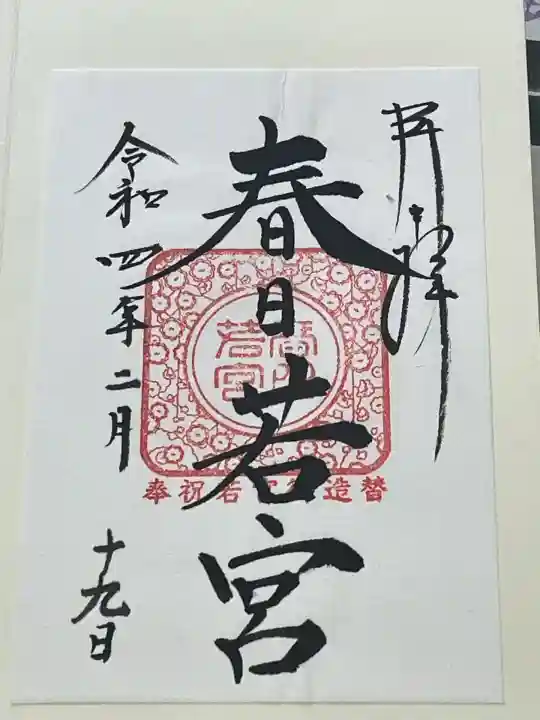 奉拝
春日若宮
春日
若宮
奉祝若宮御造替
令和四年二月
十九日